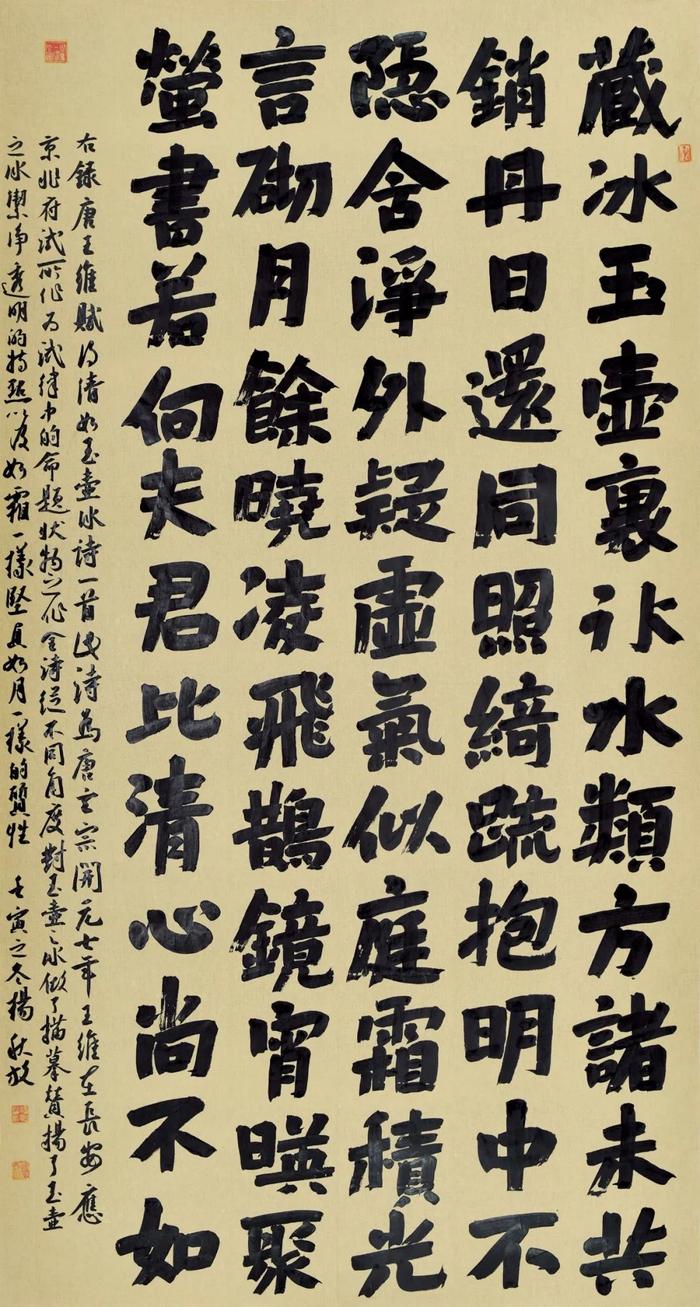 藏冰玉壺裏冰水類方諸未共
銷丹日還同照綺疏抱明中不
隱含淨外疑虛氣似庭霜積光
言砌月餘曉凌飛鵲鏡宵暎聚
螢書若向夫君比清心尚不如
右錄唐王維賦得清如玉壺冰詩一首此詩為唐玄宗開元七年王維在長安應
京兆府試所作為試律中的命題狀物之作全詩從不同角度對玉壺之冰做了描摹贊揚了玉壺
之冰潔淨透明的特點以及如霜一樣堅貞如月一樣的質性 壬寅之冬楊秋